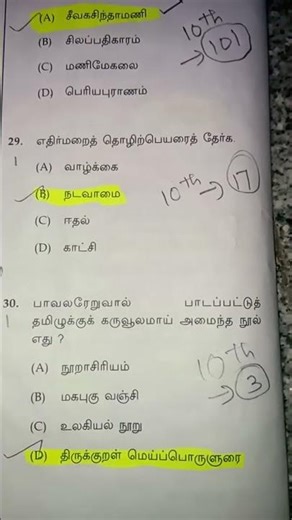 (A) சீவகசிந்தாமணி
(B) சிலப்பதிகாரம்
(C) மணிமேகலை
(D) பெரியபுராணம்
10th
→ 101
29. எதிர்மறைத் தொழிற்பெயரைத் தேர்க.
1
(A) வாழ்க்கை
(B) நடவாமை
(C) ஈதல்
(D) காட்சி
10th → 17
30. பாவலரேறுவால் பாடப்பட்டுத்
1 தமிழுக்குக் கருவூலமாய் அமைந்த நூல்
எது ?
(A) நூறாசிரியம்
(B) மகபுகு வஞ்சி
(C) உலகியல் நூறு
(D) திருக்குறள் மெய்ப்பொருளுரை
10th
→ 3